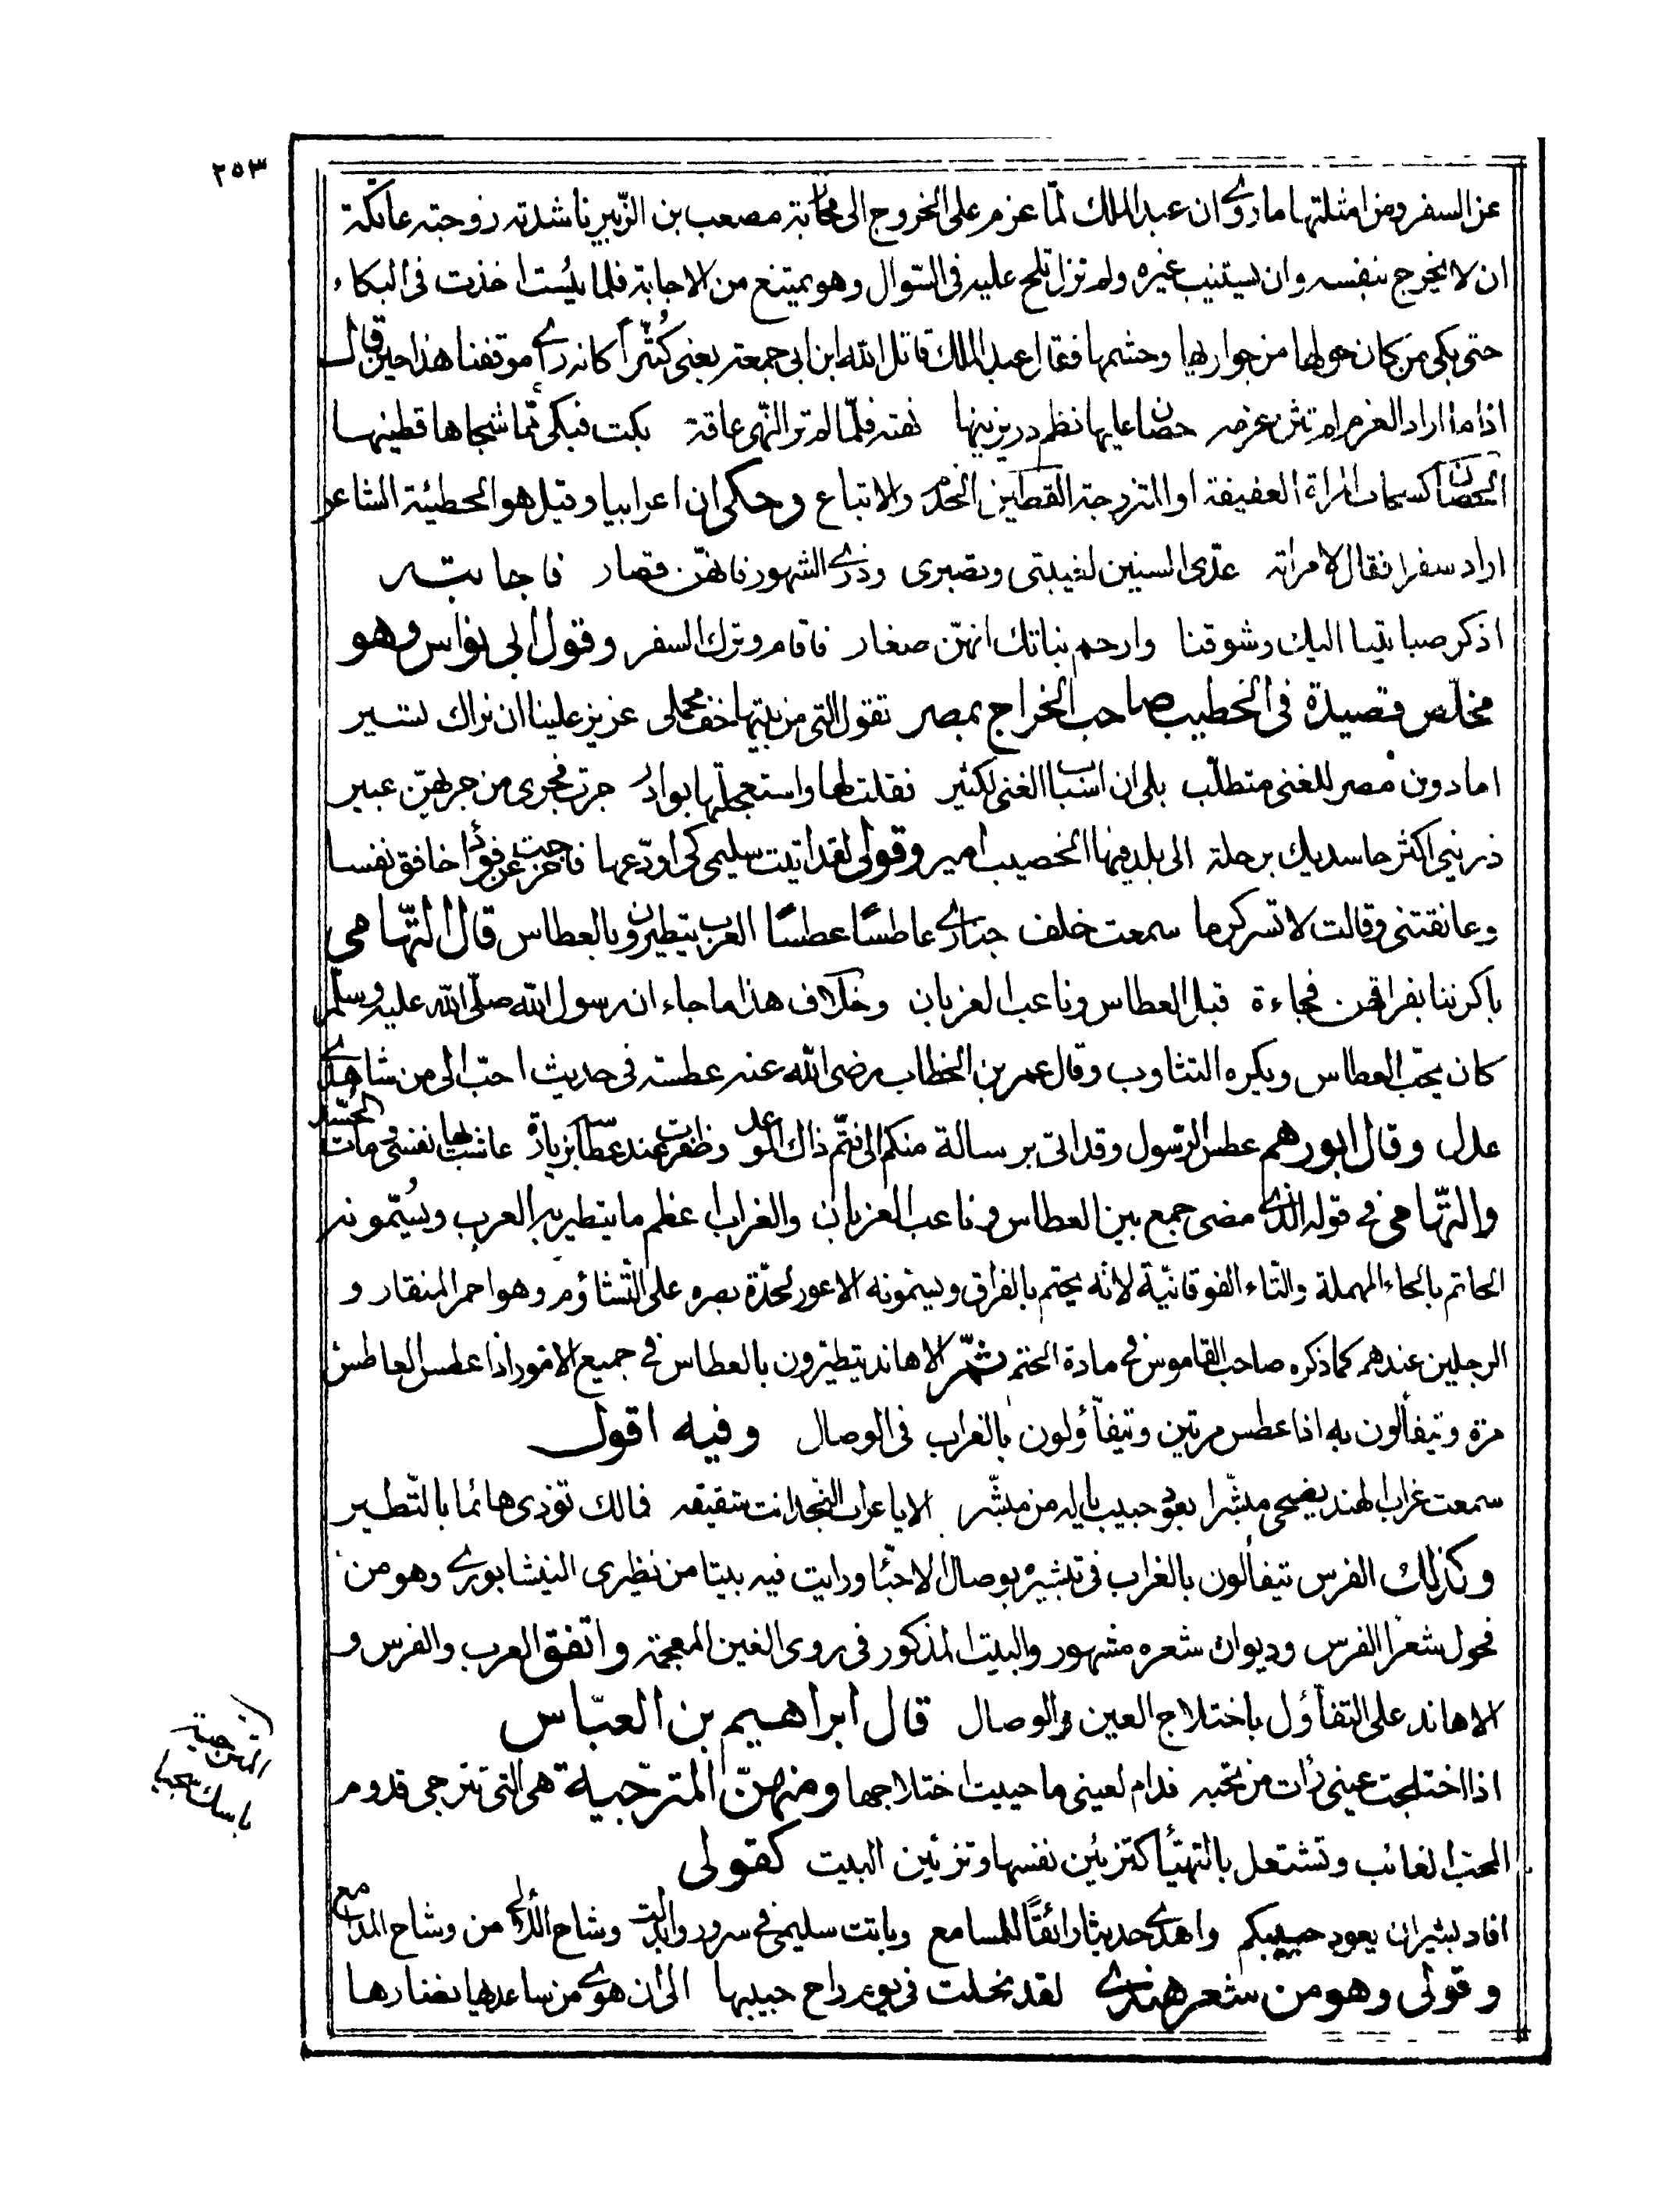 ٢٥٣
عن السفر ومن امثلتها ما روي ان عبد الملك لمّا عزم على الخروج الى محاربة مصعب بن الزّبير ناشدته زوجته عاتكة
ان لا يخرج بنفسه وان يستنيب غيره ولم تزل تلح عليه فى السّوال وهو يمتنع من الاجابة فلما يئست اخذت فى البكاء
حتى بكى من كان حولها من جواريها وحشمها فقال عبد الملك قاتل الله ابن ابى جمعة يعنى كُثيّراً كانه رأى موقفنا هذا حين قال
اذا ما اراد الغزم لم تثن عزمه حصان عليها نظم در يزينها نهته فلمّا لم تر النّهى عاقة بكت فبكى ممّا شجاها قطينها
الحصان كسحاب المراة العفيفة او المتزوجة القطين الخدم والاتباع وحكى ان اعرابيا وقيل هو الحطيئة الشاعر
اراد سفرا فقال لامراته عدّى السنين لغيبتى وتصبرى وذرى الشهور فانهنّ قصار فاجابته
اذكر صبابتنا اليك وشوقنا وارحم بناتك انهنّ صغار فاقام وترك السفر وقول ابى نواس وهو
مخلّص قصيدة فى الخطيب صاحب الخراج بمصر تقول التى من بيتها خف محملى عزيز علينا ان نراك تسير
اما دون مصر للغنى متطلّب بلى ان اسباب الغنى لكثير فقلت لها واستعجلتها بوادر جرت فجرى من جريهنّ عبير
ذرينى اكثر حاسديك برحلة الى بلد فيها الخصيب امير وقولى لقد اتيت سليمى كى اودّعها فاخرجت عن فؤاد خافق نفسا
وعانقتنى وقالت لا تسر كرما سمعت خلف جدارى عاطسًا عطسًا العرب يتطيرون بالعطاس قال التّهامى
باكرننا بفراقهن فجاءة قبل العطاس وناعب الغربان وخلاف هذا ما جاء ان رسول الله صلّى الله عليه وسلّم
كان يحب العطاس ويكره التثاوب وقال عمر بن الخطاب رضى الله عنه عطسة فى حديث احبّ الى من شاهدى
عدل وقال ابو رهم عطس الرّسول وقد اتى برسالة منكم الى فتم ذاك الموعد وظفرت عند عطاسه بزيارة عاشت بها نفسى ومات الحسّد
والتّهامى فى قوله الذى مضى جمع بين العطاس وناعب الغربان والغراب اعظم ما يتطير به العرب ويُسمّونه
الحاتم بالحاء المهملة والتّاء الفوقانيّة لانّه يحتم بالفراق ويسمّونه الاعور لحدّة بصره على التّشاؤم وهو احمر المنقار و
الرجلين عندهم كما ذكره صاحب القاموس فى مادة الحتم ثمّ الاهاند يتطيّرون بالعطاس فى جميع الامور اذا عطس العاطس
مرة ويتفألون به اذا عطس مرتين ويتفاؤلون بالغراب فى الوصال وفيه اقول
سمعت غراب الهند يضحى مبشّرا بعود حبيب يا له من مبشّر الا يا غراب النّجد انت شقيقه فمالك تؤذى هائما بالتّطير
وكذلك الفرس يتفألون بالغراب فى تبشيره بوصال الاحبّا ورايت فيه بيتا من نظيرى النيشابورى وهو من
فحول شعرا الفرس وديوان شعره مشهور والبيت المذكور فى روى الغين المعجمة واتفق العرب والفرس و
الاهاند على التفاؤل باختلاج العين فى الوصال قال ابراهيم بن العبّاس
اذا اختلجت عينى رأت من تحبه فدام لعينى ما حييت اختلاجها ومنهنّ المترجّية هى التى تترجى قدوم
المحب الغائب وتشتغل بالتهيّأ كتزيين نفسها وتزيين البيت كقولى
افاد بشير ان يعود حبيبكم واهدى حديثا رائقًا للمسامع وباتت سليمى فى سرور وابدلت وشاح اللّالى من وشاح المدامع
وقولى وهو من شعر هندى لقد نحلت فى يوم راح حبيبها الى ان هوى من ساعديها نضارها